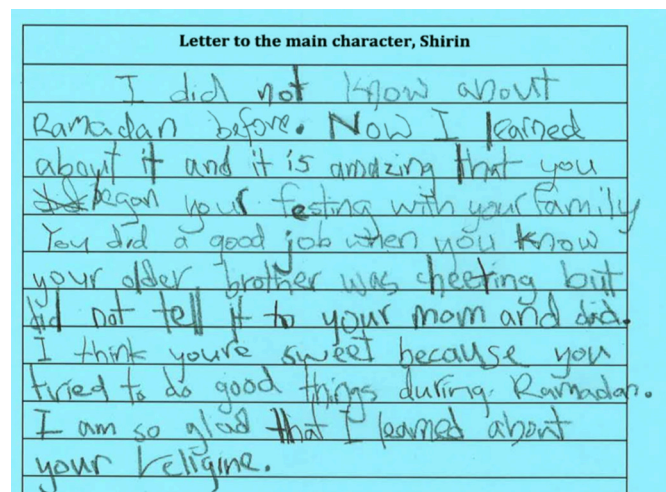 Letter to the main character, Shirin
I did not know about
Ramadan before. Now I learned
about it and it is amazing that you
began your festing with your family
You did a good job when you know
your older brother was cheeting but
did not tell it to your mom and dad.
I think you're sweet because you
tried to do good things during Ramadan.
I am so glad that I learned about
your religine.